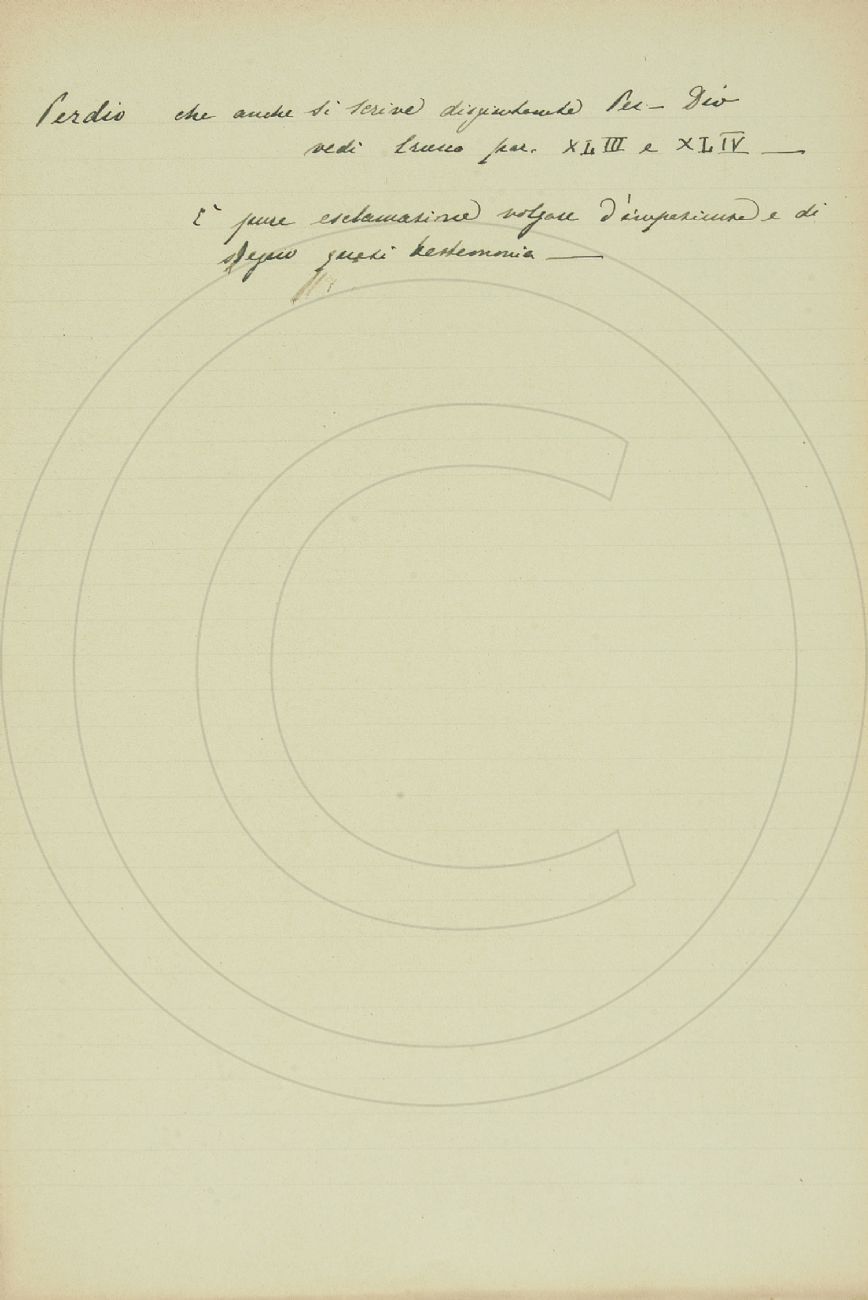 Perdio che anche si scrive disgiuntamente Per-Dio
vedi Crusca par. XLIII e XLIV —
È pure esclamazione volgare d'impazienza e di
sdegno quasi bestemmia —